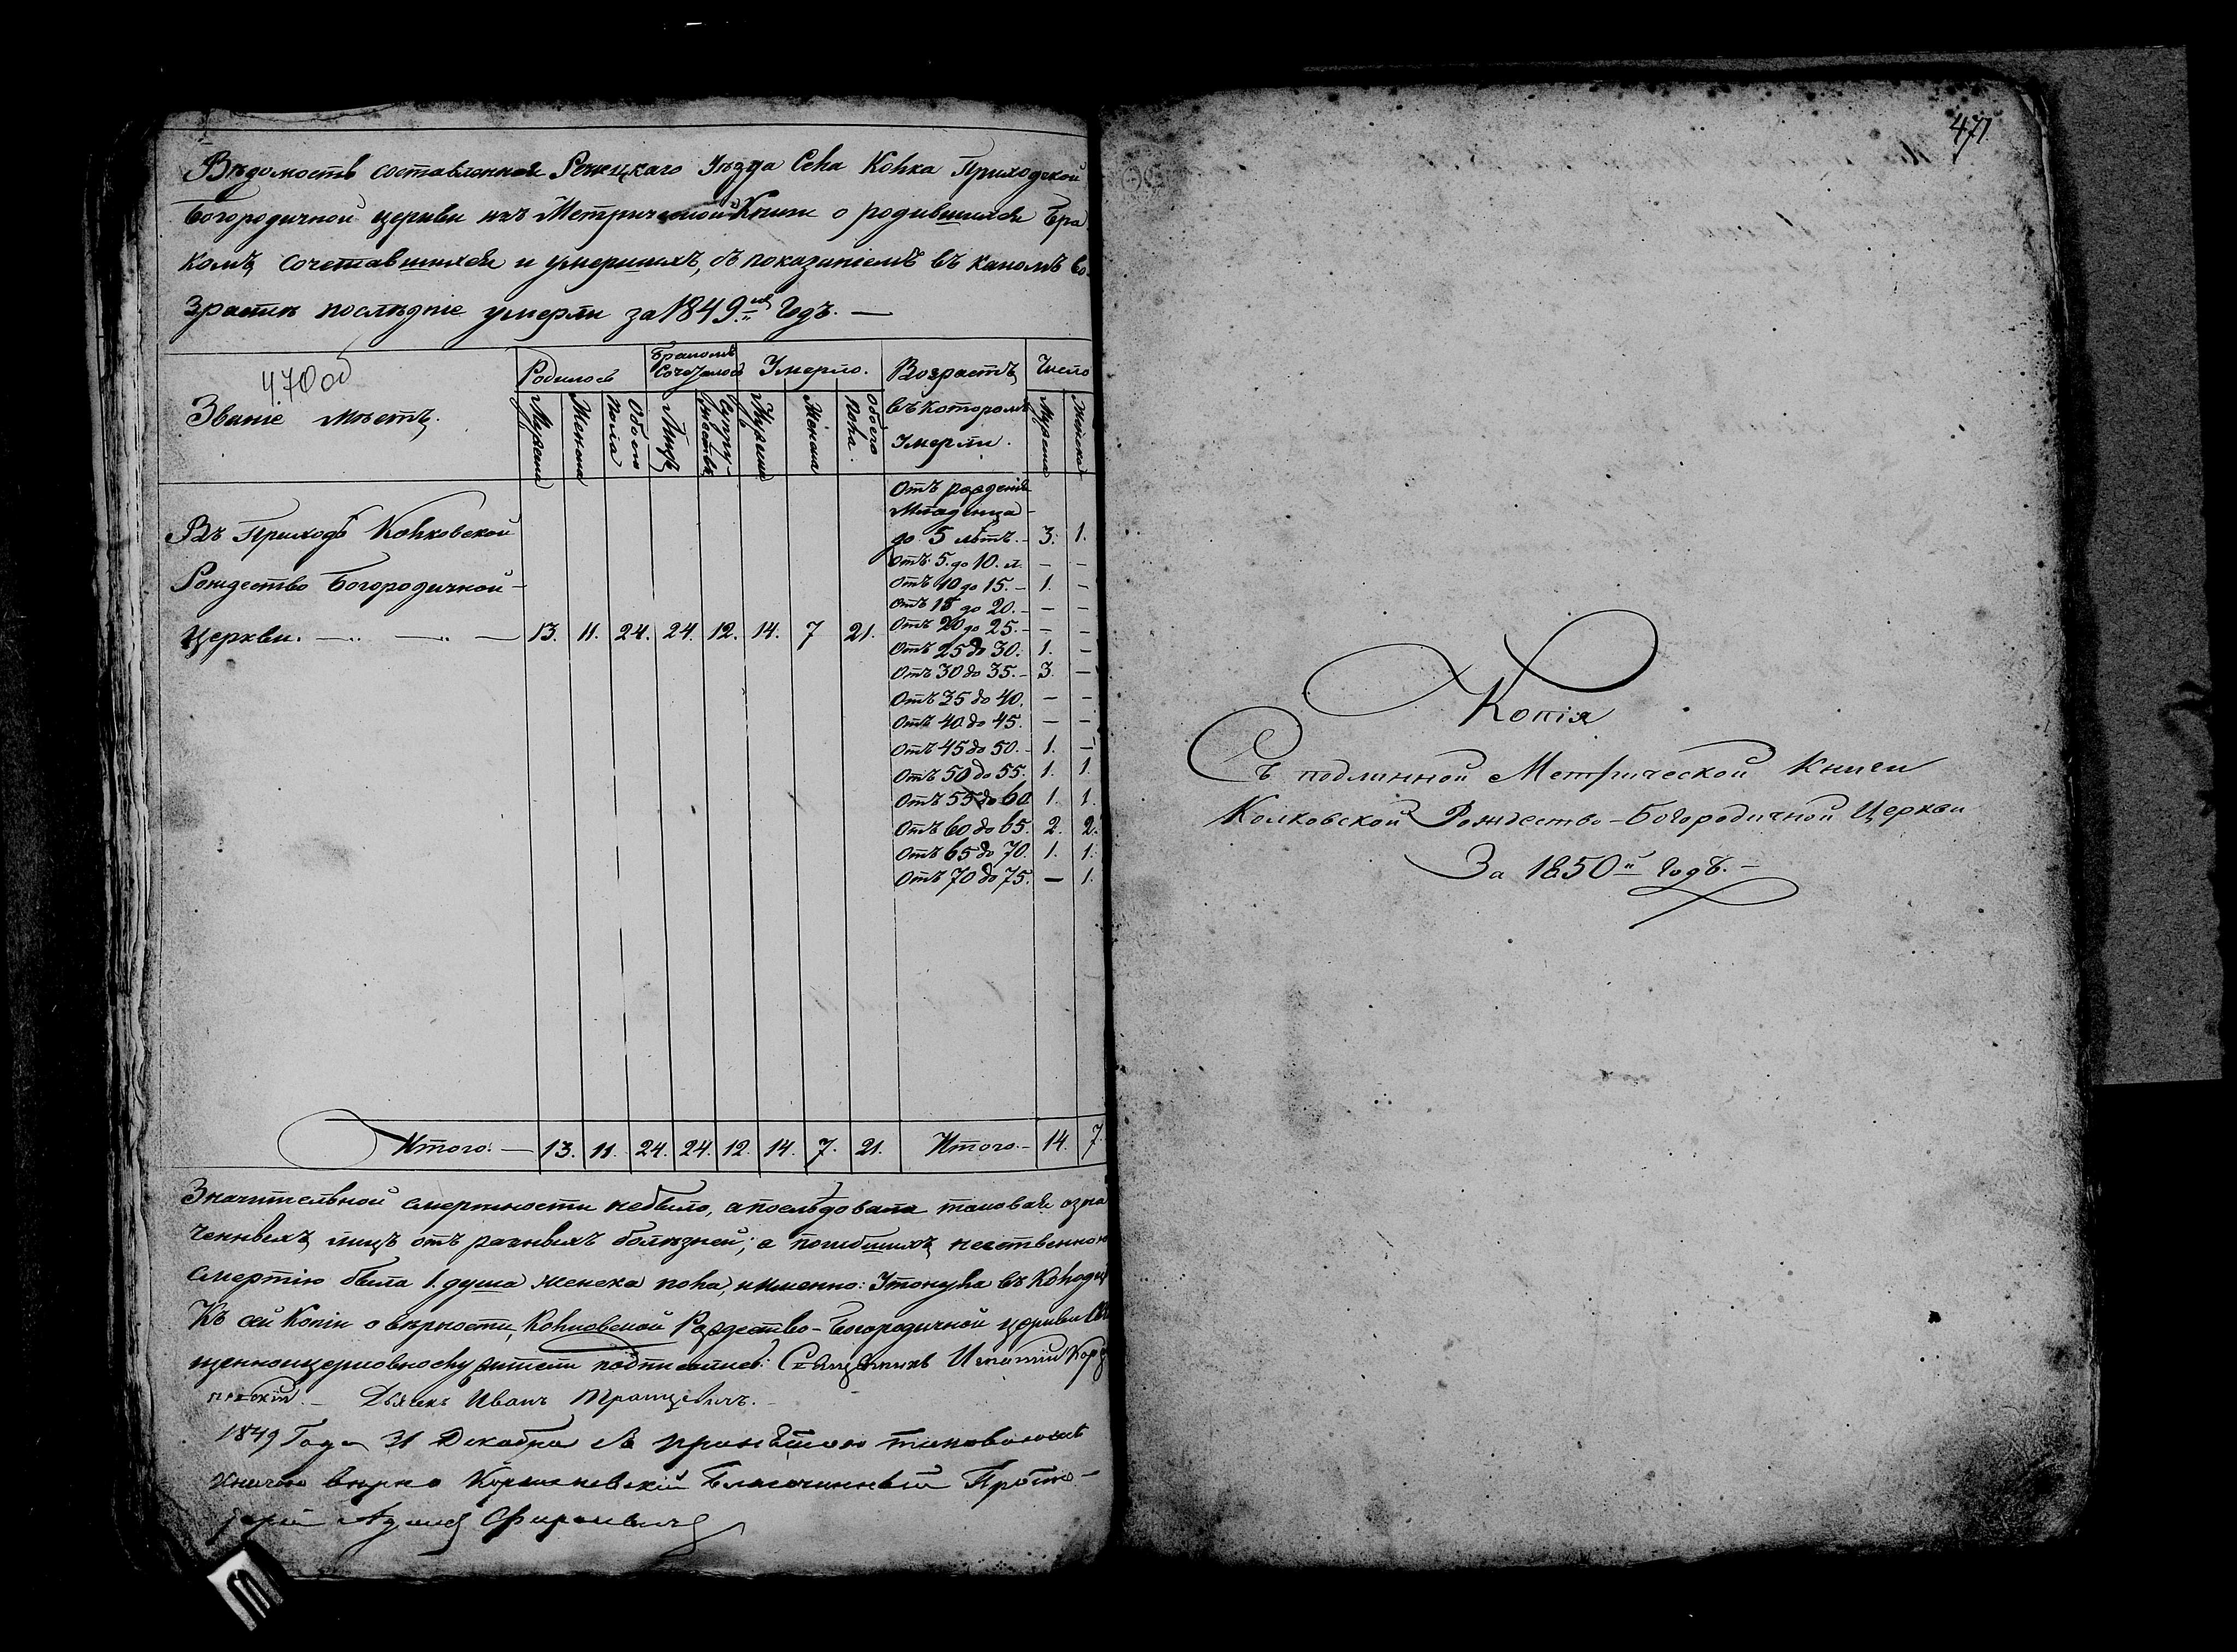 Вѣдомость составленная Рѣжицкаго Уѣзда Села Колка Приходской
Богородичной церкви изъ Метрической Книги о родившихся Бра
комъ сочетавшихся и умершихъ, съ показаніемъ въ какомъ во-
зрастѣ послѣдніе умерли за 1849.ый Годъ. —
470 об
Званіе мѣстъ.
Родилось
Бракомъ Сочеталось
Умерло.
Возрастъ въ которомъ Умерли.
Число
Мужска Женска Обоего Пола Лицъ Супружествъ Мужска Женска Обоего Пола. Мужска Женска
Въ Приходѣ Колковской
Рождество Богородичной —
Церкви. — 13. 11. 24. 24. 12. 14. 7 21.
Отъ рожденія
Младенца
до 5 лѣтъ. — 3. 1.
Отъ 5. до 10. л. — —
Отъ 10 до 15. — 1. —
Отъ 15 до 20. — — —
Отъ 20 до 25. — — —
Отъ 25 до 30. 1. —
Отъ 30 до 35. — 3. —
Отъ 35 до 40. — —
Отъ 40 до 45. — —
Отъ 45 до 50. — 1. —
Отъ 50 до 55. 1. 1.
Отъ 55 до 60 1. 1.
Отъ 60 до 65. 2. 2.
Отъ 65 до 70. 1. 1.
Отъ 70 до 75. — 1.
Итого. — 13. 11. 24. 24. 12. 14. 7. 21. Итого. — 14. 7.
Значительной смертности небыло, а послѣдовала таковая озна
ченныхъ лицъ отъ разныхъ болѣзней; а погибшихъ
смертію была 1. душа женска пола, именно: Утонула въ
Къ сей Копіи о вѣрности Колковской Рождество-Богородичной церкви
подписались: Священникъ Игнатій
Дьячекъ Иванъ
1849 Года 31 Декабря
вѣрно Благочинный Прото-
іерей
471
Копія
Съ подлинной Метрической Книги
Колковской Рождество-Богородичной Церкви
За 1850й Годъ. —